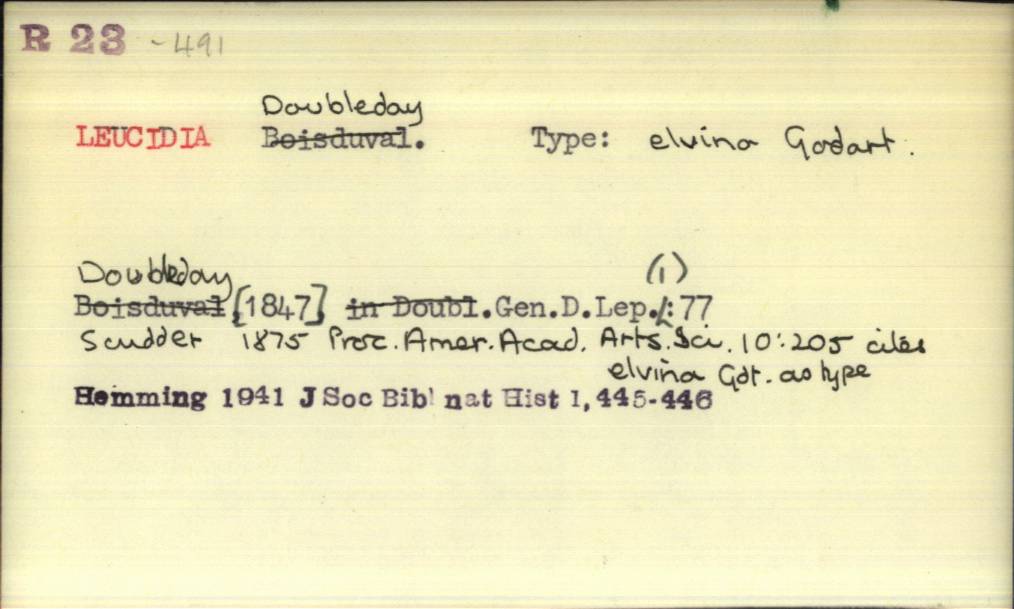 R 23 -491
Doubleday
LEUCIDIA Boisduval. Type: elvina Godart.
Doubleday (1)
Boisduval [1847] in Doubl. Gen. D. Lep. : 77
Scudder 1875 Proc. Amer. Acad. Arts. Sci. 10:205 cites
elvina Gdt. as type
Hemming 1941 J Soc Bibl nat Hist 1, 445-446